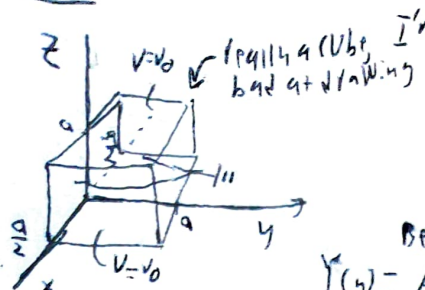 Z
V=V₀
really a cube, I'm
bad at drawing
a
a
y
a/2
x
V=V₀
Y(y) =